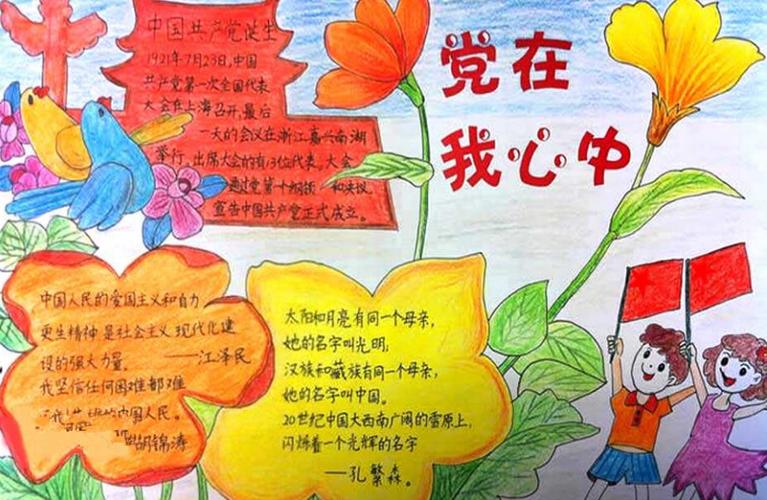 中国共产党诞生
1921年7月23日,中国
共产党第一次全国代表
大会在上海召开,最后
一天的会议在浙江嘉兴南湖
举行。出席大会的有13位代表。大会
通过党第十纲领 和决议,
宣告中国共产党正式成立。
党在
我心中
中国人民的爱国主义和自力
更生精神是社会主义现代化建
设的强大力量。
——江泽民
我坚信任何困难都难
的中国人民。
胡锦涛
太阳和月亮有同一个母亲,
她的名字叫光明,
汉族和藏族有同一个母亲,
她的名字叫中国。
20世纪中国大西南广阔的雪原上,
闪烁着一个光辉的名字
——孔繁森。